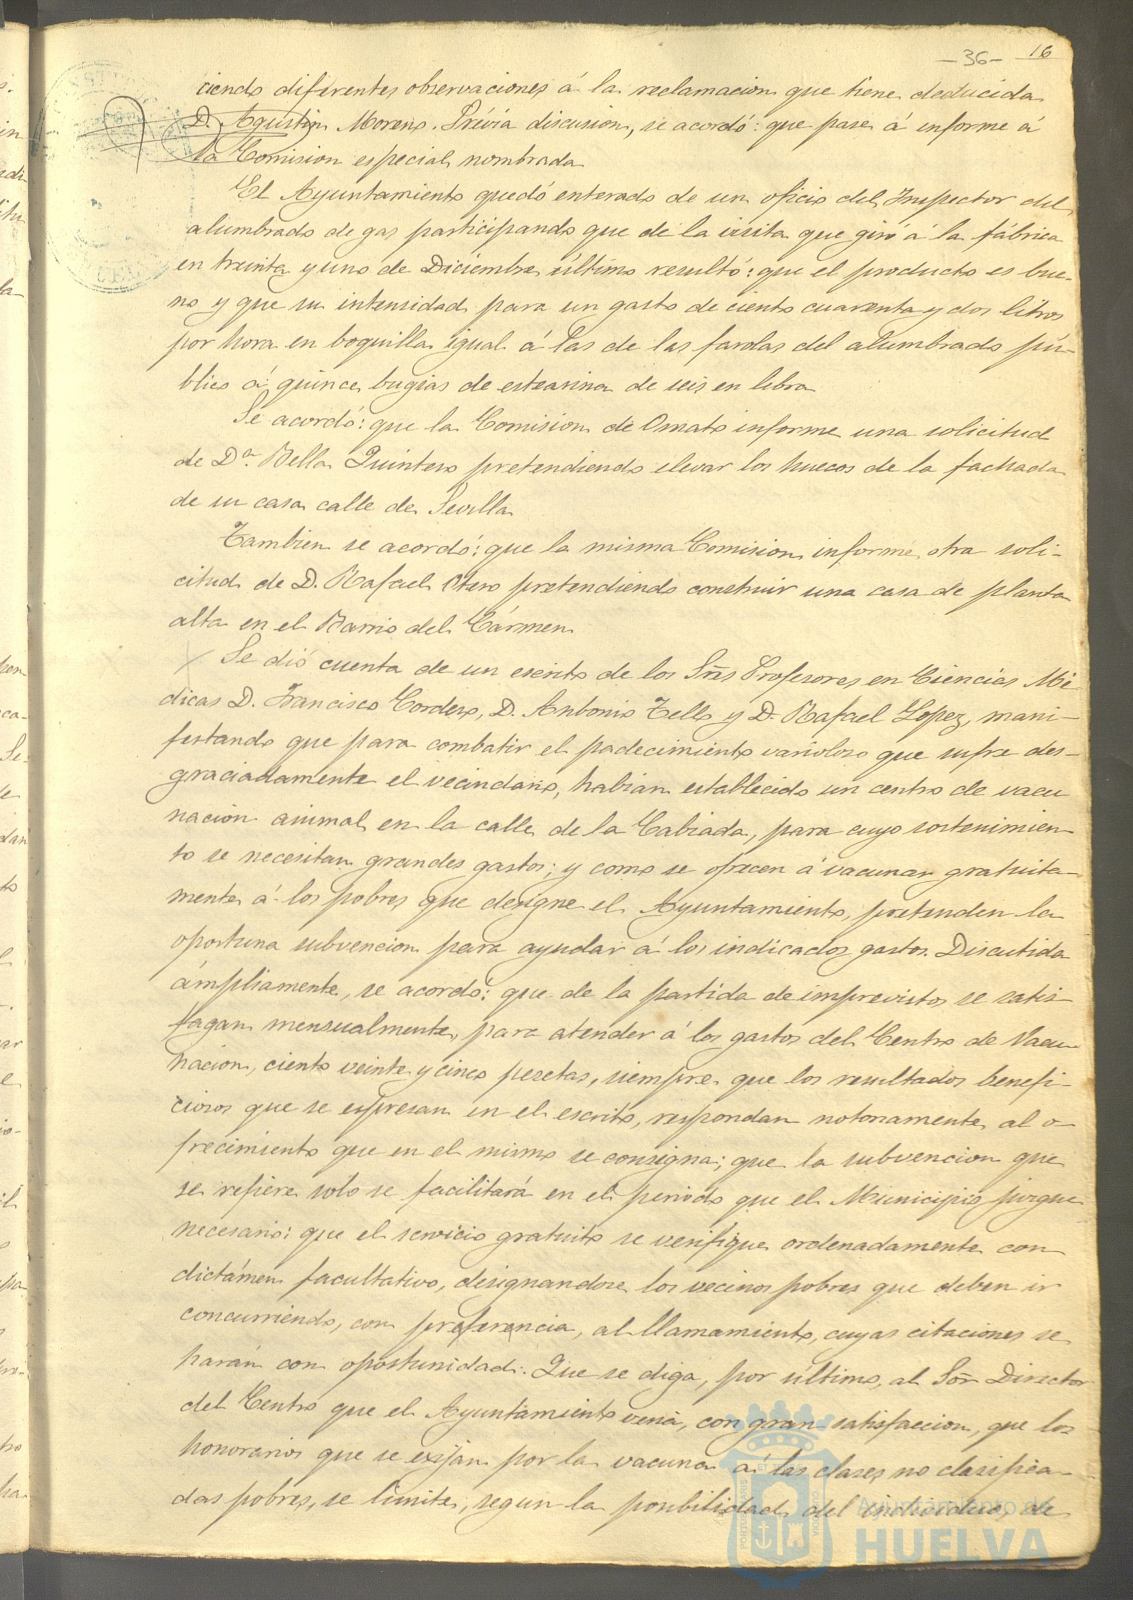 -36- 16
ciendo diferentes observaciones á la reclamacion que tiene deducida
D. Agustin Moreno. Prévia discusion, se acordó: que pase á informe á
la Comision especial nombrada
El Ayuntamiento quedó enterado de un oficio del Inspector del
alumbrado de gas participando que de la visita que giró á la fábrica
en treinta y uno de Diciembre último resultó: que el producto es bue-
no y que su intensidad para un gasto de ciento cuarenta y dos litros
por hora en boquilla igual á las de las farolas del alumbrado pú-
blico á quince bugias de estearina de seis en libra
Se acordó: que la Comision de Ornato informe una solicitud
de Dª. Bella Quintero pretendiendo elevar los huecos de la fachada
de su casa calle de Sevilla
Tambien se acordó: que la misma Comision informe otra soli-
citud de D. Rafael Otero pretendiendo construir una casa de planta
alta en el Barrio del Cármen
Se dió cuenta de un escrito de los Sres Profesores en Ciencias Mé-
dicas D. Francisco Cordero, D. Antonio Tello y D. Rafael Lopez, mani-
festando que para combatir el padecimiento varioloso que sufre des-
graciadamente el vecindario, habian establecido un centro de vacu
nacion animal en la calle de la Calzada, para cuyo sostenimien
to se necesitan grandes gastos; y como se ofrecen á vacunar gratuita-
mente á los pobres que designe el Ayuntamiento, pretenden la
oportuna subvencion para ayudar á los indicados gastos. Discutida
ámpliamente, se acordó: que de la partida de imprevistos se satis-
fagan mensualmente, para atender á los gastos del Centro de Vacu
nacion, ciento veinte y cinco pesetas, siempre que los resultados benefi-
ciosos que se espresan en el escrito, respondan notoriamente al o-
frecimiento que en el mismo se consigna; que la subvencion que
se refiere solo se facilitará en el periodo que el Municipio juzgue
necesario: que el servicio gratuito se verifique ordenadamente con
dictámen facultativo, designandose los vecinos pobres que deben ir
concurriendo, con preferencia, al llamamiento, cuyas citaciones se
harán con oportunidad: Que se diga, por último, al Sor Director
del Centro que el Ayuntamiento veria, con gran satisfaccion, que los
honorarios que se exijan por la vacuna á las clases no clasifica-
das pobres, se limite, segun la posibilidad del individuo, de
Ayuntamiento de
HUELVA